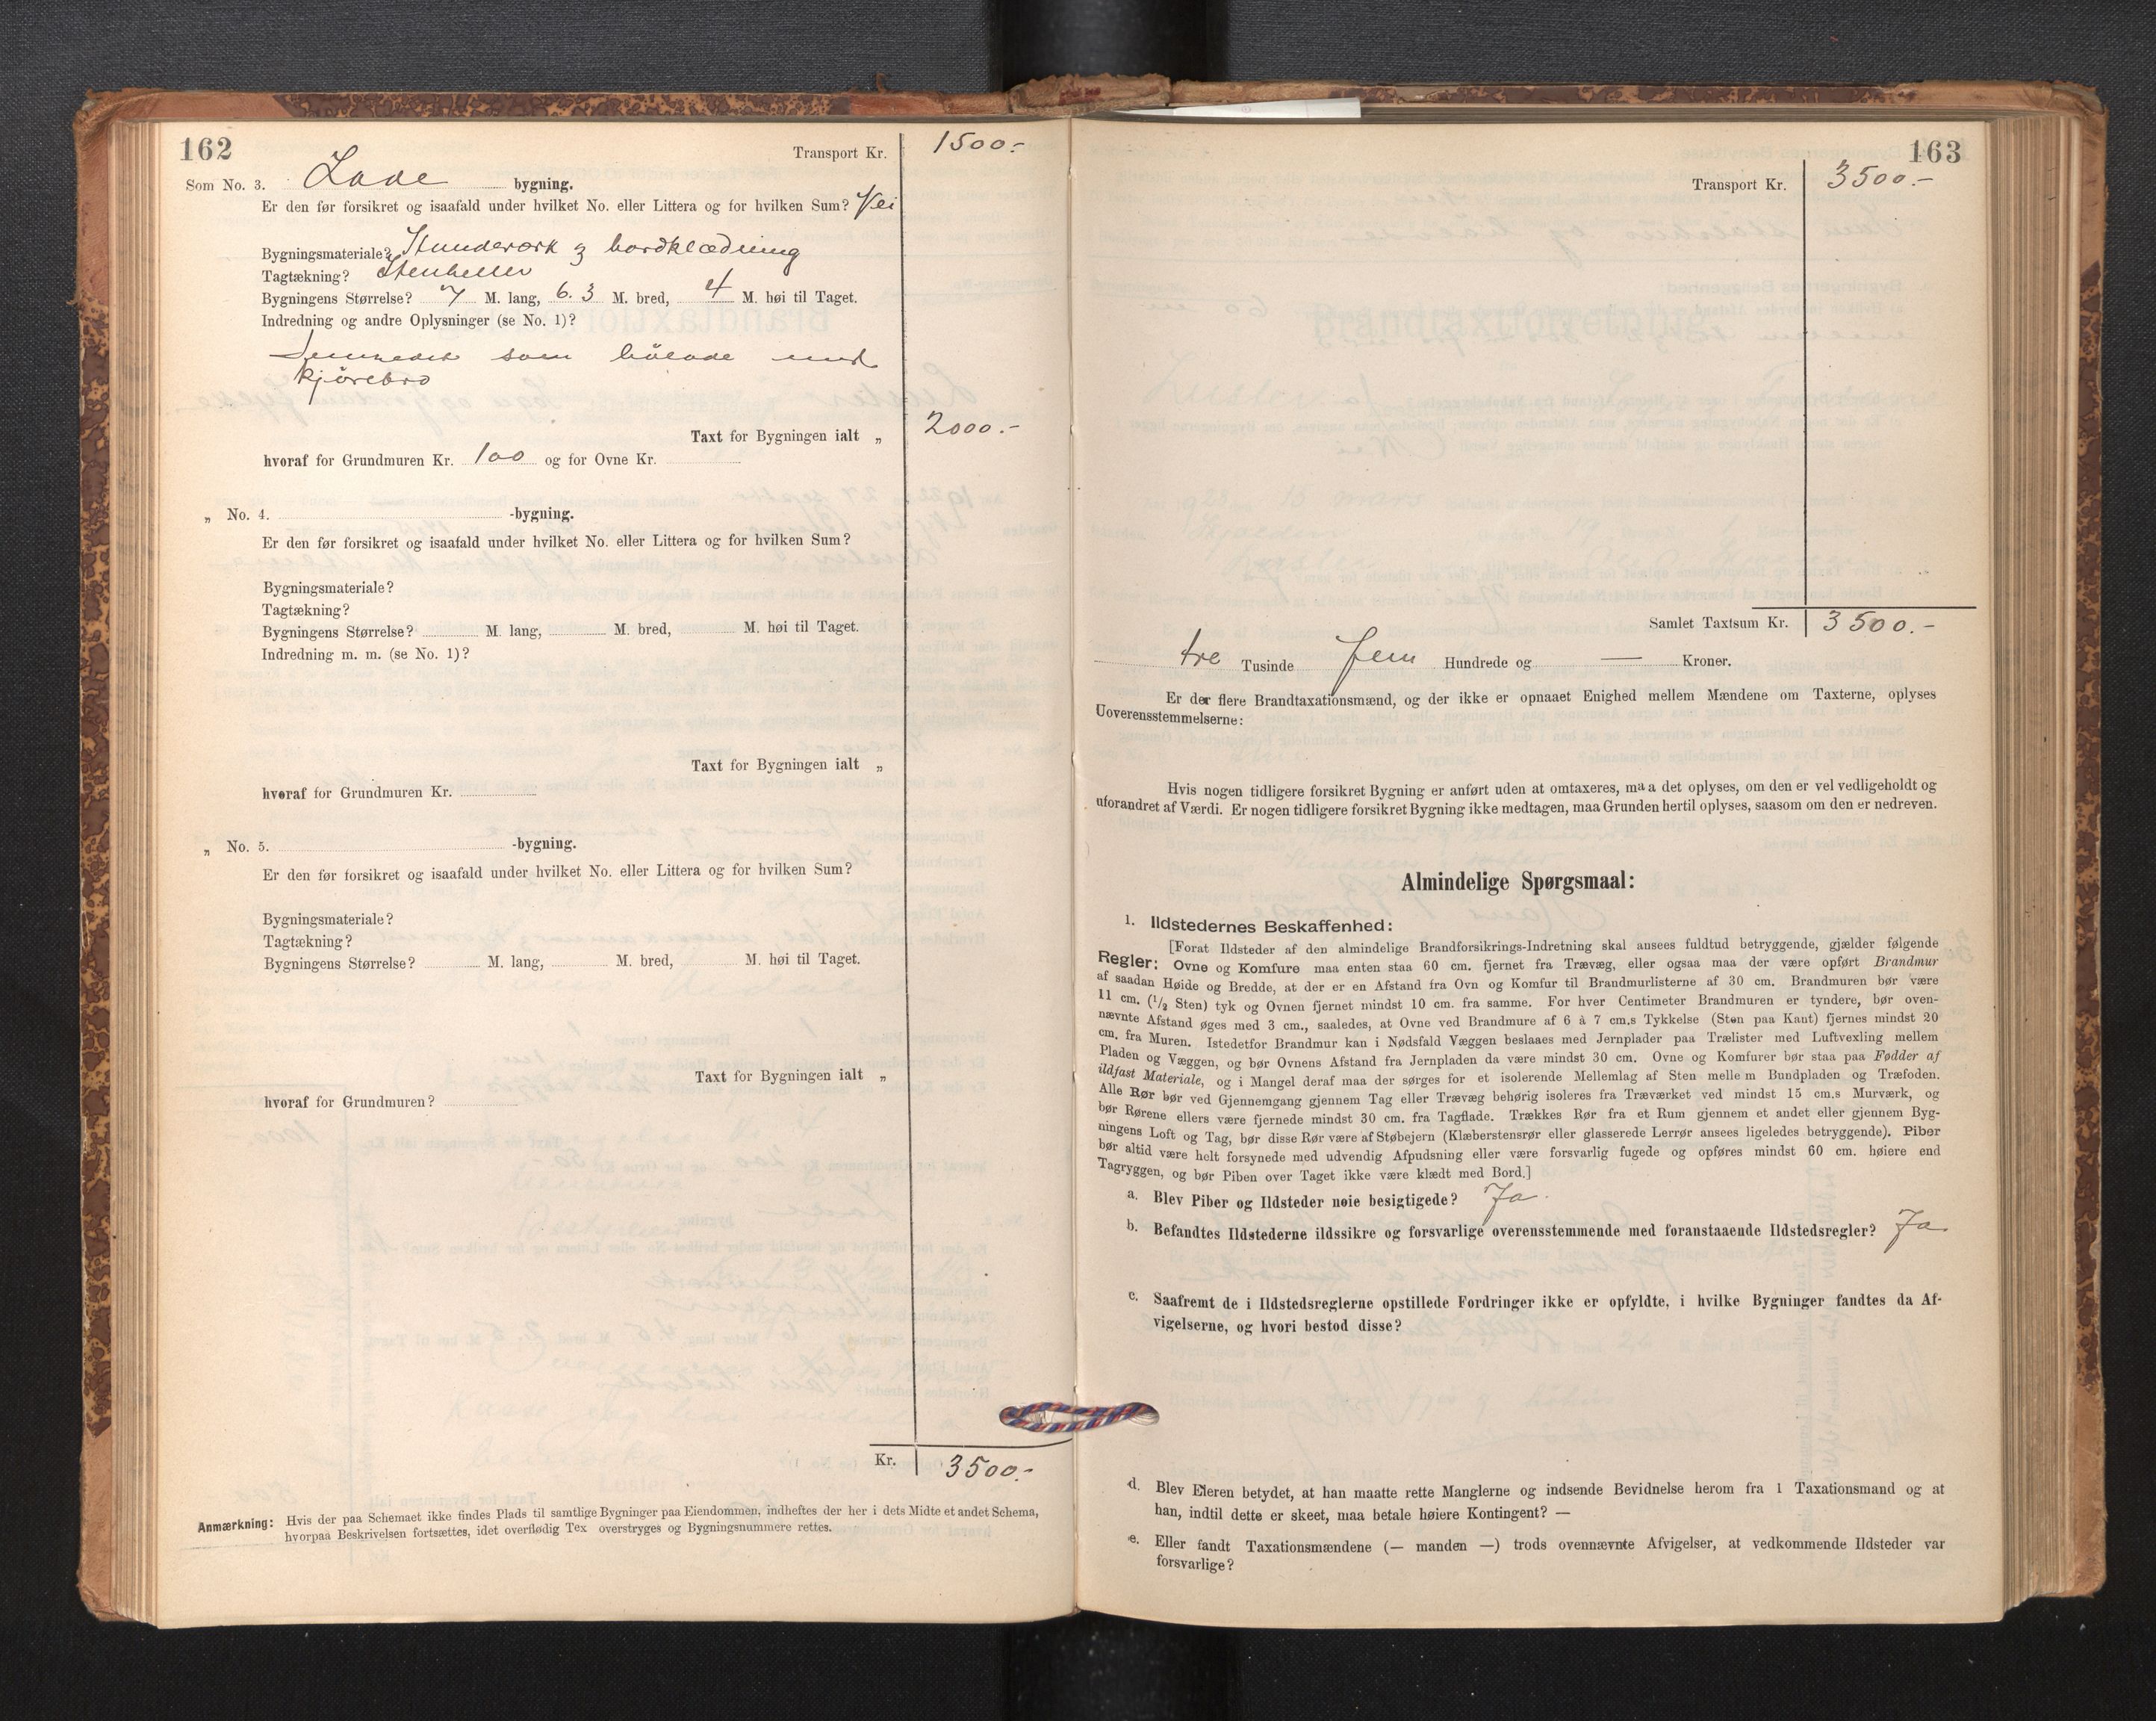 162
Transport Kr. 1500.-
Som No. 3. Lade bygning.
Er den før forsikret og isaafald under hvilket No. eller Littera og for hvilken Sum? Nei
Bygningsmateriale? Stenderværk & bordklædning
Tagtækning? Stenheller
Bygningens Størrelse? 7 M. lang, 6.3 M. bred, 4 M. høi til Taget.
Indredning og andre Oplysninger (se No. 1)?
som hölade med
kjörebro
Taxt for Bygningen ialt „ 2000.-
hvoraf for Grundmuren Kr. 100 og for Ovne Kr.
„ No. 4. -bygning.
Er den før forsikret og isaafald under hvilket No. eller Littera og for hvilken Sum?
Bygningsmateriale?
Tagtækning?
Bygningens Størrelse? M. lang, M. bred, M. høi til Taget.
Indredning m. m. (se No. 1)?
Taxt for Bygningen ialt „
hvoraf for Grundmuren Kr.
„ No. 5. -bygning.
Er den før forsikret og isaafald under hvilket No. eller Littera og for hvilken Sum?
Bygningsmateriale?
Tagtækning?
Bygningens Størrelse? M. lang, M. bred, M. høi til Taget.
Taxt for Bygningen ialt „
hvoraf for Grundmuren?
Kr. 3500.-
Anmærkning: Hvis der paa Schemaet ikke findes Plads til samtlige Bygninger paa Eiendommen, indheftes der her i dets Midte et andet Schema,
hvorpaa Beskrivelsen fortsættes, idet overflødig Tex overstryges og Bygningsnummere rettes.
163
Transport Kr. 3500.-
Samlet Taxtsum Kr. 3500.-
tre Tusinde fem Hundrede og — Kroner.
Er der flere Brandtaxationsmænd, og der ikke er opnaaet Enighed mellem Mændene om Taxterne, oplyses
Uoverensstemmelserne:
Hvis nogen tidligere forsikret Bygning er anført uden at omtaxeres, maa det oplyses, om den er vel vedligeholdt og
uforandret af Værdi. Er nogen tidligere forsikret Bygning ikke medtagen, maa Grunden hertil oplyses, saasom om den er nedreven.
Almindelige Spørgsmaal:
1. Ildstedernes Beskaffenhed:
[Forat Ildsteder af den almindelige Brandforsikrings-Indretning skal ansees fuldtud betryggende, gjælder følgende
Regler: Ovne og Komfure maa enten staa 60 cm. fjernet fra Trævæg, eller ogsaa maa der være opført Brandmur
af saadan Høide og Bredde, at der er en Afstand fra Ovn og Komfur til Brandmurlisterne af 30 cm. Brandmuren bør være
11 cm. (1/2 Sten) tyk og Ovnen fjernet mindst 10 cm. fra samme. For hver Centimeter Brandmuren er tyndere, bør oven-
nævnte Afstand øges med 3 cm., saaledes, at Ovne ved Brandmure af 6 à 7 cm.s Tykkelse (Sten paa Kant) fjernes mindst 20
cm. fra Muren. Istedetfor Brandmur kan i Nødsfald Væggen beslaaes med Jernplader paa Trælister med Luftvexling mellem
Pladen og Væggen, og bør Ovnens Afstand fra Jernpladen da være mindst 30 cm. Ovne og Komfurer bør staa paa Fødder af
ildfast Materiale, og i Mangel deraf maa der sørges for et isolerende Mellemlag af Sten mellem Bundpladen og Træfoden.
Alle Rør bør ved Gjennemgang gjennem Tag eller Trævæg behørig isoleres fra Træværket ved mindst 15 cm.s Murværk, og
bør Rørene ellers være fjernede mindst 30 cm. fra Tagflade. Trækkes Rør fra et Rum gjennem et andet eller gjennem Byg-
ningens Loft og Tag, bør disse Rør være af Støbejern (Klæberstensrør eller glasserede Lerrør ansees ligeledes betryggende). Piber
bør altid være helt forsynede med udvendig Afpudsning eller være forsvarlig fugede og opføres mindst 60 cm. høiere end
Tagryggen, og bør Piben over Taget ikke være klædt med Bord.]
a. Blev Piber og Ildsteder nøie besigtigede? Ja.
b. Befandtes Ildstederne ildssikre og forsvarlige overensstemmende med foranstaaende Ildstedsregler? Ja
c. Saafremt de i Ildstedsreglerne opstillede Fordringer ikke er opfyldte, i hvilke Bygninger fandtes da Af-
vigelserne, og hvori bestod disse?
d. Blev Eieren betydet, at han maatte rette Manglerne og indsende Bevidnelse herom fra 1 Taxationsmand og at
han, indtil dette er skeet, maa betale høiere Kontingent? —
e. Eller fandt Taxationsmændene (— manden —) trods ovennævnte Afvigelser, at vedkommende Ildsteder var
forsvarlige?